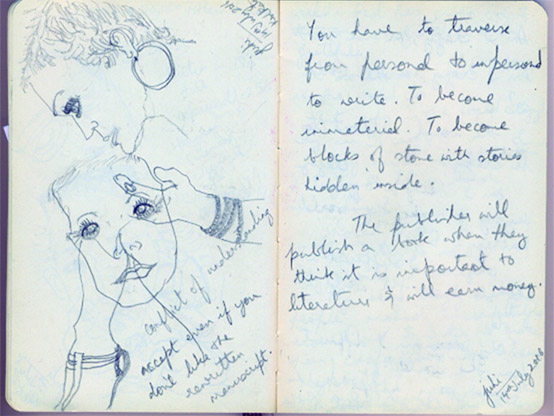 conflict of understanding
accept even if you
don't like the
rewritten
manuscript.
You have to traverse
from personal to impersonal
to write. To become
immaterial. To become
blocks of stone with stories
hidden inside.
The publisher will
publish a book when they
think it is important to
literature & will earn money.
July 2008